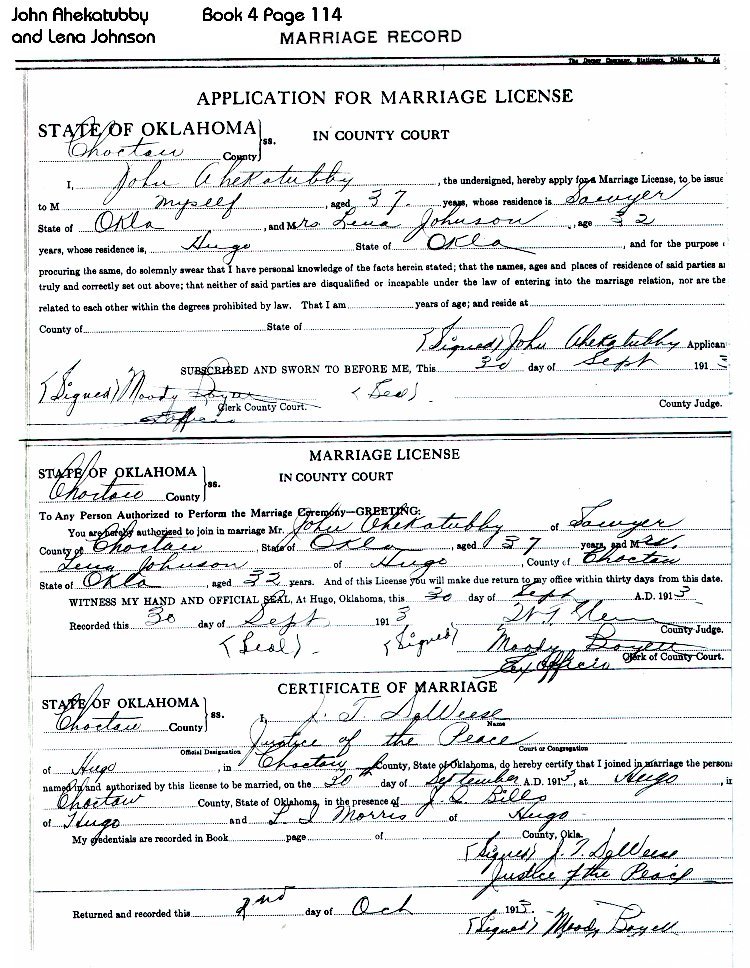 John Ahekatubby Book 4 Page 114
and Lena Johnson MARRIAGE RECORD
The Dorsey Company, Stationers, Dallas, Tex.
APPLICATION FOR MARRIAGE LICENSE
STATE OF OKLAHOMA
Choctaw County ss. IN COUNTY COURT
I, John Ahekatubby, the undersigned, hereby apply for a Marriage License, to be issue
to M myself, aged 37 years, whose residence is Sawyer
State of Okla, and Mrs Lena Johnson, age 32
years, whose residence is, Hugo State of Okla, and for the purpose
procuring the same, do solemnly swear that I have personal knowledge of the facts herein stated; that the names, ages and places of residence of said parties a
truly and correctly set out above; that neither of said parties are disqualified or incapable under the law of entering into the marriage relation, nor are the
related to each other within the degrees prohibited by law. That I am years of age; and reside at
County of State of
(Signed) John Ahekatubby Applican
SUBSCRIBED AND SWORN TO BEFORE ME, This 30 day of Sept 1913
(Signed) Moody (Seal)
Clerk County Court. County Judge.
MARRIAGE LICENSE
STATE OF OKLAHOMA
Choctaw County ss. IN COUNTY COURT
To Any Person Authorized to Perform the Marriage Ceremony—GREETING:
You are hereby authorized to join in marriage Mr. John Ahekatubby of Sawyer
County of Choctaw, State of Okla, aged 37 years, and Mrs.
Lena Johnson of Hugo, County of Choctaw
State of Okla, aged 32 years. And of this License you will make due return to my office within thirty days from this date.
WITNESS MY HAND AND OFFICIAL SEAL, At Hugo, Oklahoma, this 30 day of Sept A.D. 1913
Recorded this 30 day of Sept 1913 W T Glenn
County Judge.
(Seal). (Signed) Moody Boyett
Ex Officio Clerk of County Court.
CERTIFICATE OF MARRIAGE
STATE OF OKLAHOMA
Choctaw County ss. I, J. T. DeWeese
Name
Justice of the Peace
Official Designation Court or Congregation
of Hugo, in Choctaw County, State of Oklahoma, do hereby certify that I joined in marriage the person
named in and authorized by this license to be married, on the 30th day of September A.D. 1913, at Hugo, i
Choctaw County, State of Oklahoma, in the presence of J. Bills
of Hugo and L I Morris of Hugo
My credentials are recorded in Book page of County, Okla.
(Signed) J. T. DeWeese
Justice of the Peace
Returned and recorded this 2nd day of Oct 1913.
(Signed) Moody Boyett